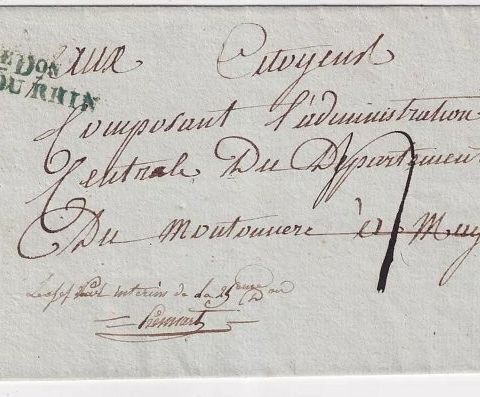 E DON
DU RHIN
aux Citoyens
Composant l'administration
Centrale Du Département
Du Montonnere à May
par interim de la 25